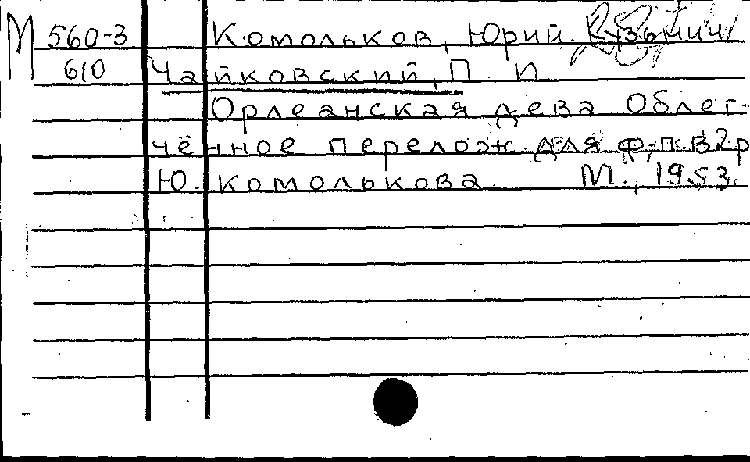 М 560-3 Комольков, Юрий Кузьмич
610 Чайковский, П. И.
Орлеанская дева Облег-
чённое перелож. для ф.-п. в 2 р.
Ю. Комолькова. М., 1953.